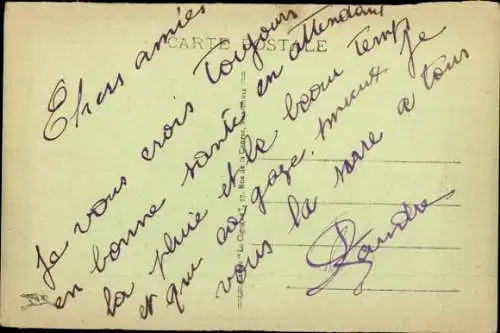 CARTE POSTALE
Chers amies
Je vous crois toujours
en bonne santé en attendant
la pluie et le beau temps
et que ça gaze mieux je
vous la serre a tous